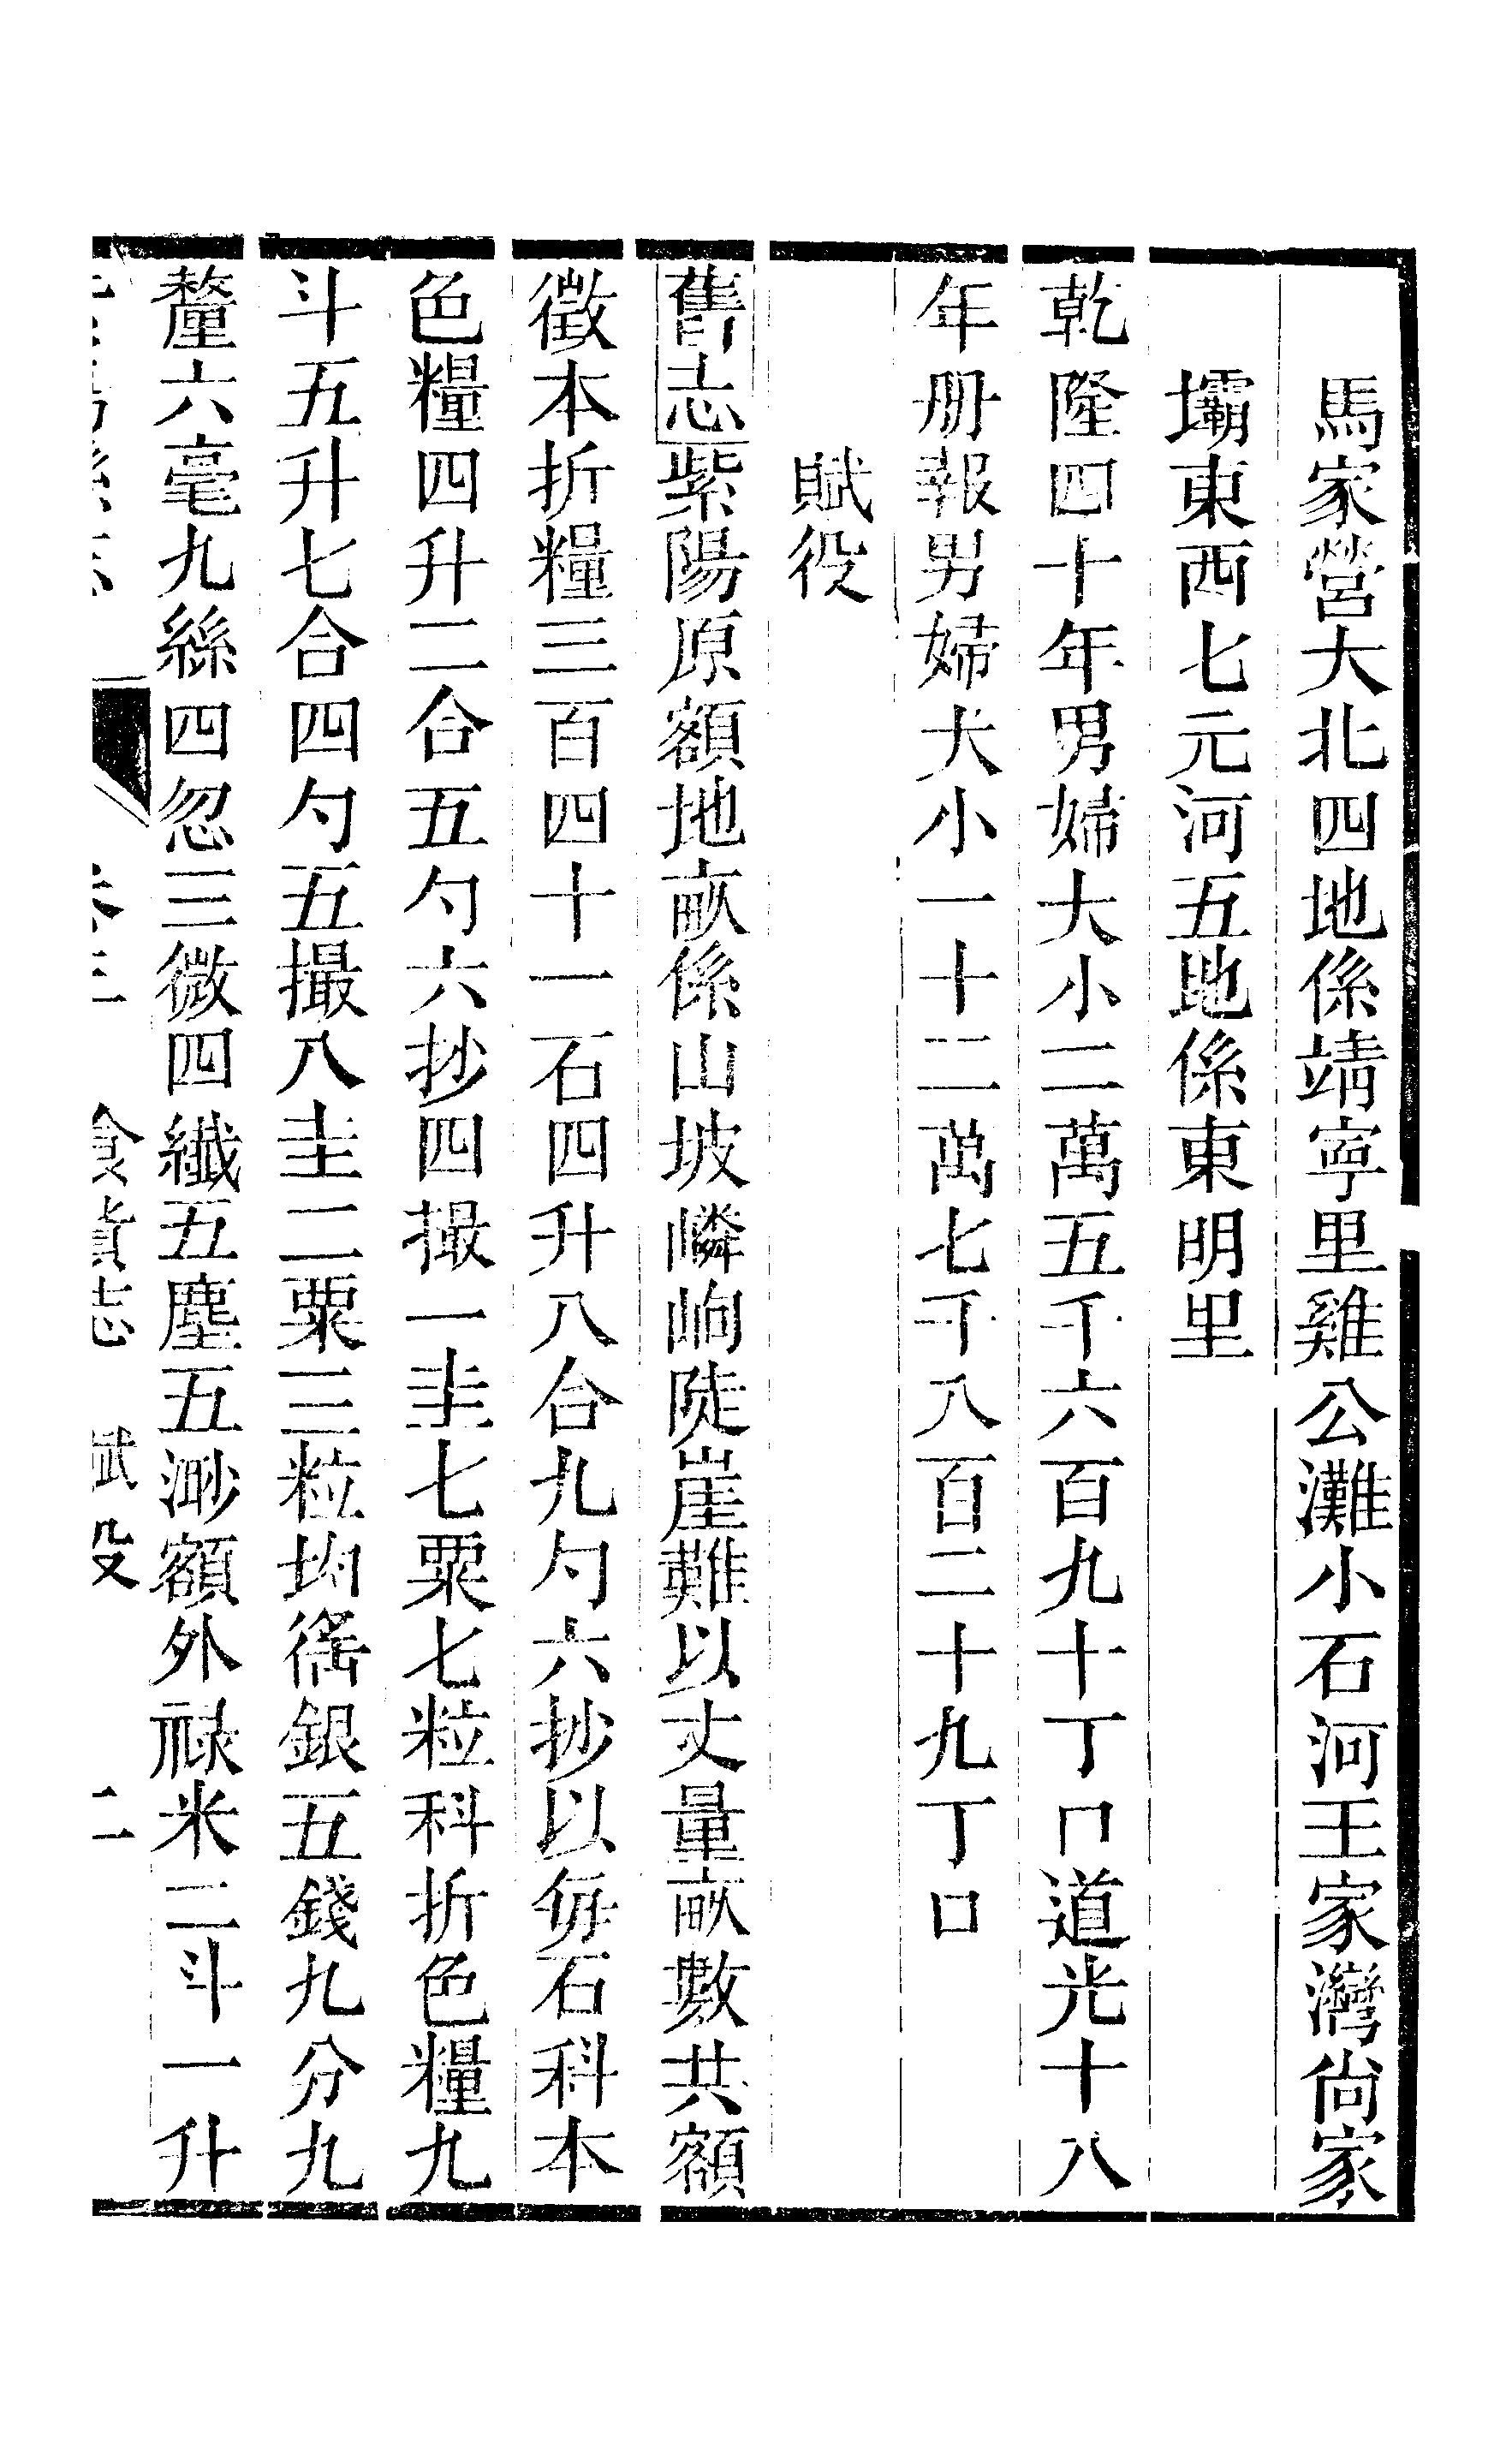 馬家營大北四地係靖寧里雞公灘小石河王家灣尙家
壩東西七元河五地係東明里
乾隆四十年男婦大小二萬五千六百九十丁口道光十八
年册報男婦大小一十二萬七千八百二十九丁口
賦役
舊志紫陽原額地畝係山坡嶙峋陡崖難以丈量畝數共額
徵本折糧三百四十一石四升八合九勺六抄以每石科本
色糧四升二合五勺六抄四撮一圭七粟七粒科折色糧九
斗五升七合四勺五撮八圭二粟三粒均徭銀五錢九分九
釐六毫九絲四忽三微四纖五塵五渺額外祿米二斗一升
卷三 食貨志 賦役 二